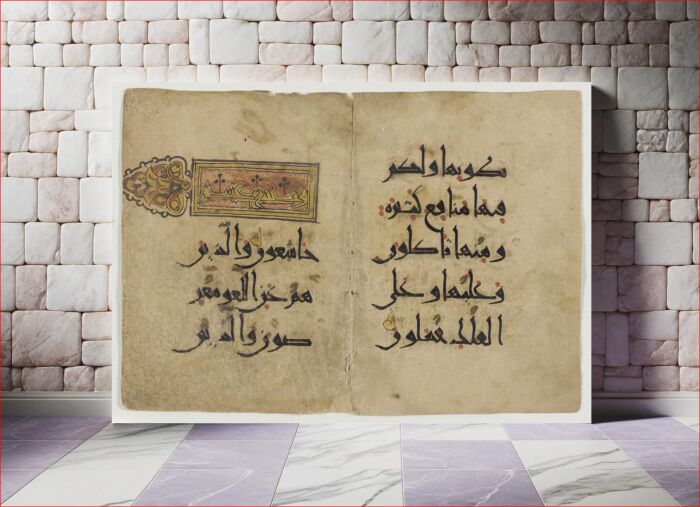 بطونها ولكم
فيها منافع كثيرة
ومنها تأكلون
وعليها وعلى
الفلك تحملون
خاشعون والذين
هم عن اللغو معر
ضون والذين